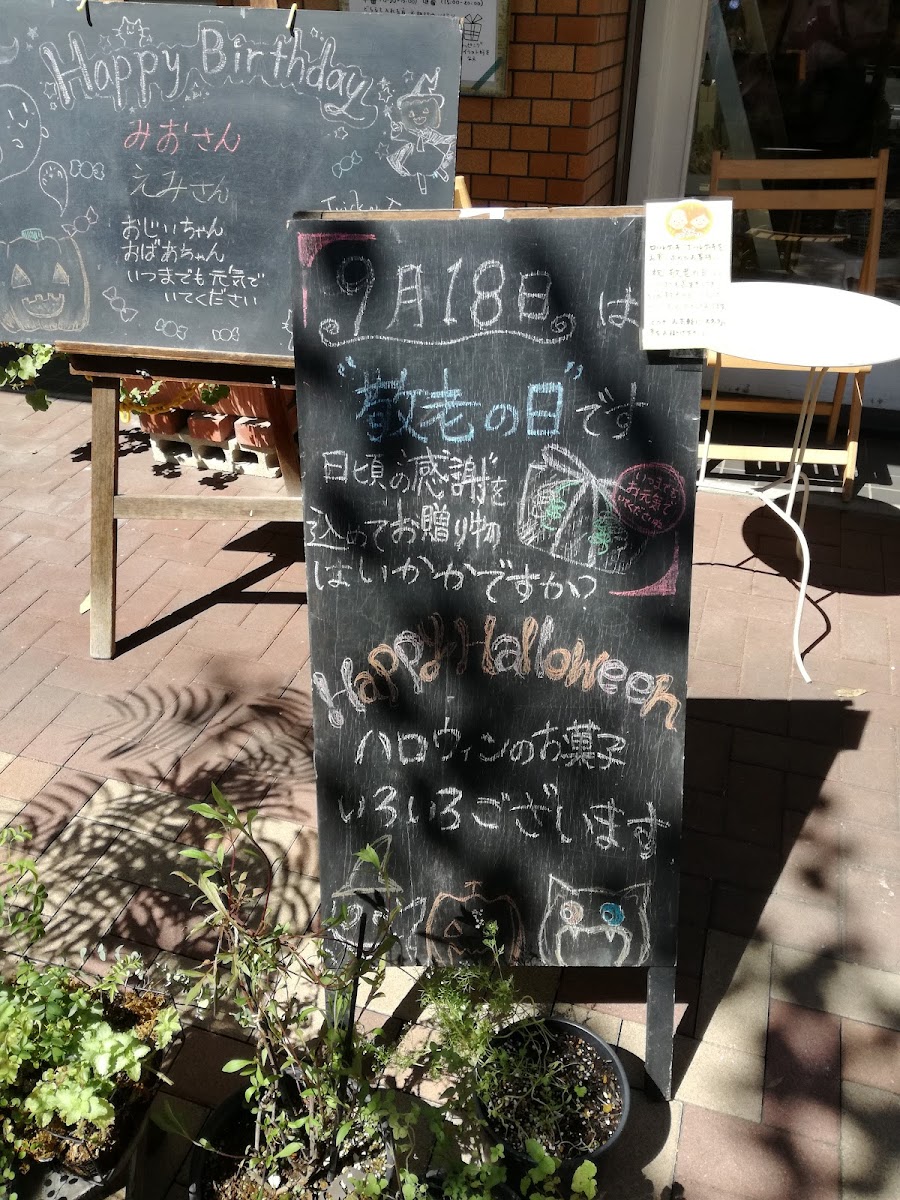 Happy Birthday
みおさん
えみさん
おじいちゃん
おばあちゃん
いつまでも元気で
いてください
9月18日は
"敬老の日"です
日頃の感謝を
込めてお贈り物
はいかがですか?
いつまでも
お元気で
いてくださいね
Happy Halloween
ハロウィンのお菓子
いろいろございます